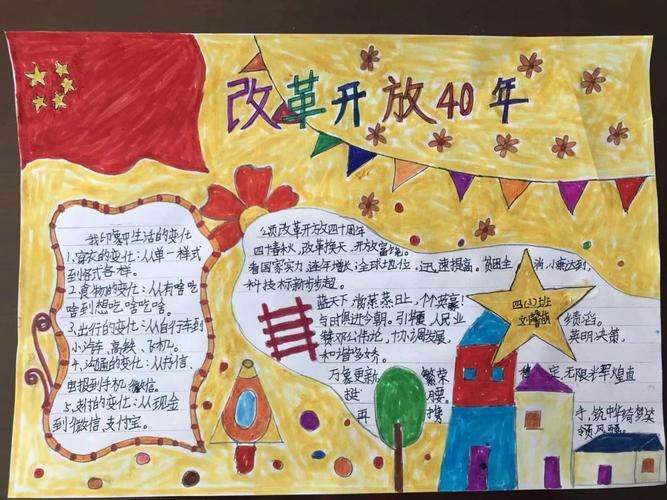 改革开放40年
我印象中生活的变化
1.穿衣的变化:从单一样式
到各式各样。
2.食物的变化:从有啥吃
啥到想吃啥吃啥。
3.出行的变化:从自行车到
小汽车、高铁、飞机。
4.沟通的变化:从书信、
电报到手机、微信。
5.支付的变化:从现金
到微信,支付宝。
颂改革开放四十周年
四十春秋,改革换天,开放富
看国家实力,逐年增长,全球地位,迅速提高。贫困全 消,小康达到,
科技标新步步超。
蓝天下,常蒸蒸日上,个个英豪!
与日俱进今朝。引 人民业 绩滔。
邓公伟论,协调发展, 英明决策,
和谐多娇。
万象更新, 繁荣 定,无限光辉煌直
挺 腰。
再 携 手,筑中华绮梦笑
领风骚。
四(3)班